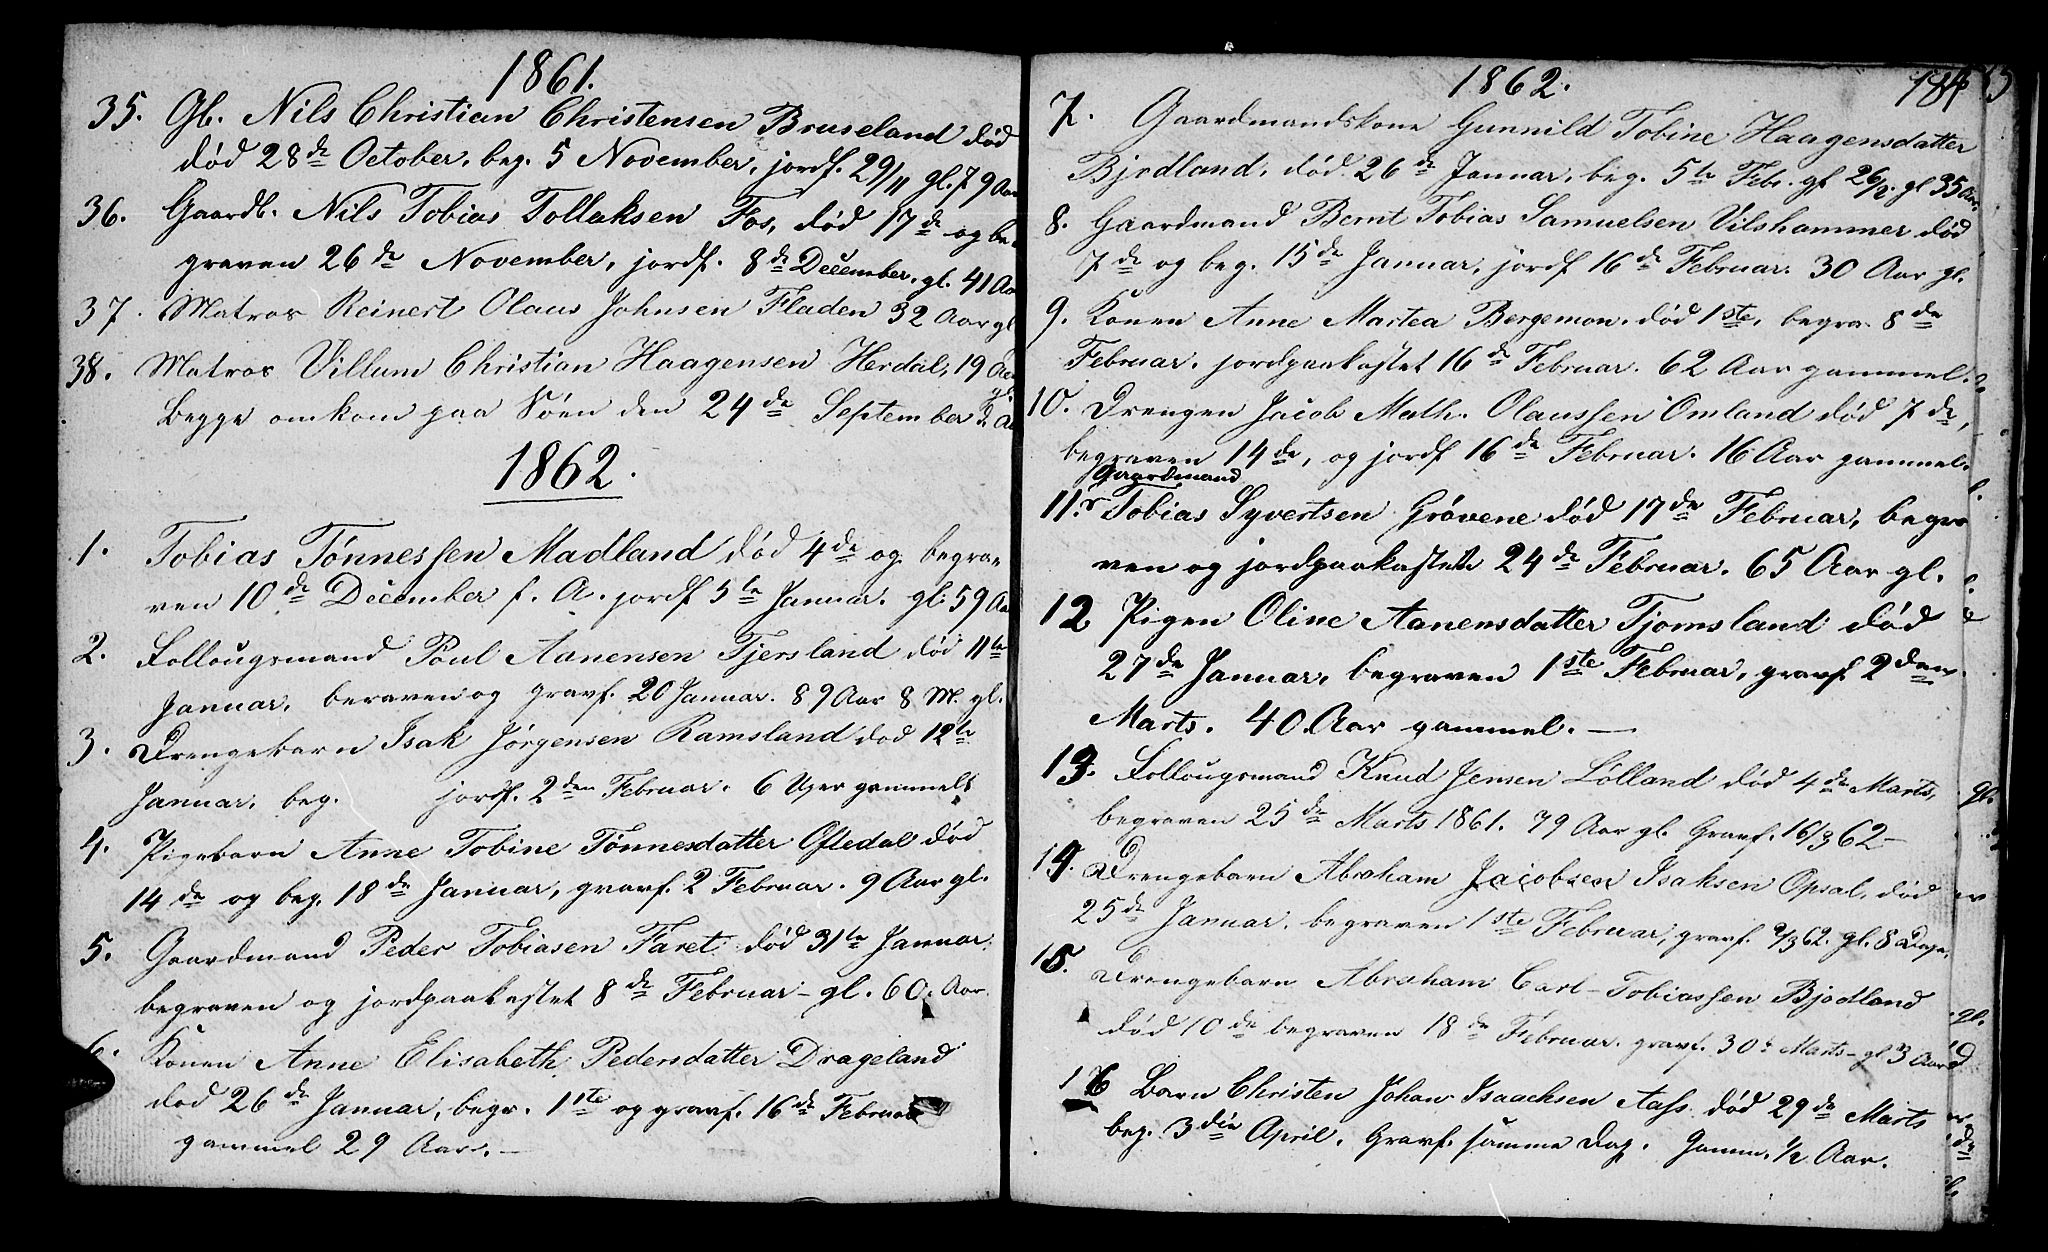 1861.
35. Gl. Nils Christian Christensen Bruseland død
død 28de October, beg. 5 November, jordf. 29/11 gl. 79 Aar
36. Gaardb. Nils Tobias Tollaksen Fos, død 17de og be-
graven 26de November, jordf. 8de December, gl. 41 Aa
37. Matros Reinert Olaus Johnsen Fladen 32 Aar gl
38. Matros Villum Christian Haagensen Herdal, 19 Aar
gl.
Begge omkom paa Søen den 24de September d. A
1862.
1. Tobias Tønnessen Madland død 4de og begra-
ven 10de December f. A. jordf 5te Januar. gl. 59 Aa
2. Follougsmand Poul Aanensen Tjersland død 11te
Januar, beraven og gravf. 20 Januar. 89 Aar 8 M. gl.
3. Drengebarn Isak Jørgensen Ramsland død 12te
Januar, beg. jordf. 2den Februar. 6 Uger gammelt
4. Pigebarn Anne Tobine Tønnesdatter Oftedal død
14de og beg. 18de Januar, gravf. 2 Februar. 9 Aar gl.
5. Gaardmand Peder Tobiasen Faret død 31te Januar.
begraven og jordpaakastet 8de Februar - gl. 60. Aar.
6. Konen Anne Elisabeth Pedersdatter Drageland
død 26de Januar, begr. 1ste og gravf. 16de Februar
gammel 29 Aar. -
1862. 184
7. Gaardmandskone Gunnild Tobine Haagensdatter
Bjodland, død 26de Januar, beg. 5te Febr. gf 26/2. gl 35 Aar.
8. Gaardmand Bernt Tobias Samuelsen Vilshammer død
7de og beg. 15de Januar, jordf 16de Februar. 30 Aar gl.
9. Konen Anne Martea Bergemon. død 1ste, begra. 8de
Februar. jordpaakastet 16de Februar. 62 Aar gammel.
10. Drengen Jacob Math. Olaussen Omland død 7de,
begraven 14de, og jordf 16de Februar. 16 Aar gammel.
Gaardmand
11. Tobias Syvertsen Grøvene død 17de Februar, begra
ven og jordpaakastet 24de Februar. 65 Aar gl.
12 Pigen Oline Aanensdatter Tjomsland død
27de Januar, begraven 1ste Februar, gravf. 2den
Marts. 40 Aar gammel. -
13. Follougsmand Knud Jensen Lølland død 4de Marts,
begraven 25de Marts 1861. 79 Aar gl. Gravf. 16/3 62 -
14. Drengebarn Abraham Jacobsen Isaksen Opsal, død
25de Januar, begraven 1ste Februar, gravf. 2/3 62. gl. 8 Dage.
15. Drengebarn Abraham Carl-Tobiassen Bjodland
død 10de begraven 18de Februar. gravf. 30te Marts - gl 3 Aar
16 Barn Christen Johan Isaachsen Aass død 29de Marts
beg. 3die April. Gravf. samme Dag. Gamm. 1/2 Aar.